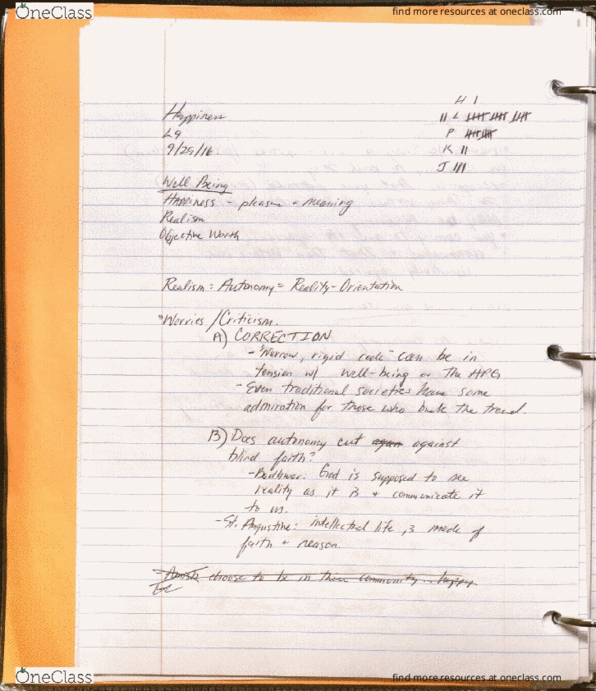 OneClass
find more resources at oneclass.com
H I
Happiness
II L 卌 卌 卌
L9
P 卌 卌
9/29/16
K II
J III
Well Being
Happiness - pleasure + meaning
Realism
Objective Worth
Realism = Autonomy = Reality-Orientation
*Worries / Criticism.
A) CORRECTION
- "Narrow, rigid code" can be in
tension w/ well-being or the HPG
- Even traditional societies have some
admiration for those who buck the trend.
B) Does autonomy cut again against
blind faith?
- Badhwar: God is supposed to see
reality as it is + communicate it
to us.
- St. Augustine: intellectual life is made of
faith + reason.
choose to be in their community
OneClass
find more resources at oneclass.com